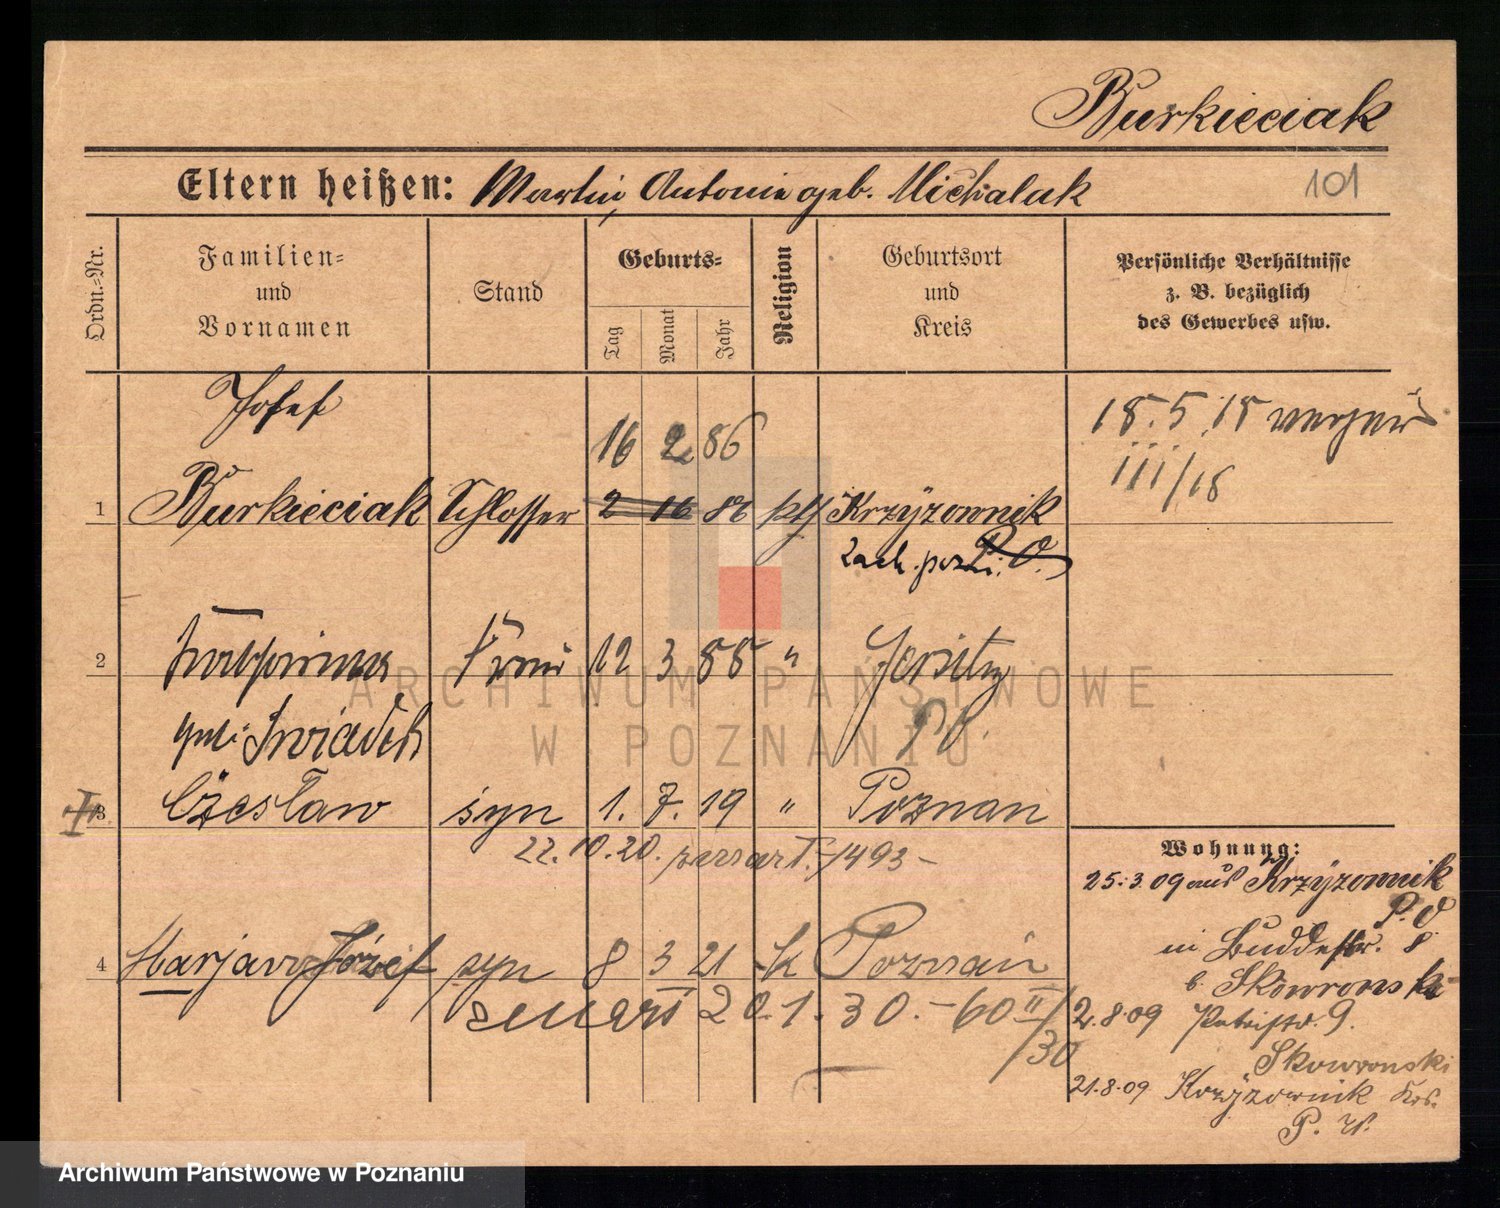 Burkieciak
Eltern heißen: Martin, Antonie geb. Michalak
101
Ordn.-Nr.
Familien-
und
Vornamen
Stand
Geburts-
Tag
Monat
Jahr
Religion
Geburtsort
und
Kreis
Persönliche Verhältnisse
z. B. bezüglich
des Gewerbes usw.
Josef
16 2 86
18.5.18
III/18
1 Burkieciak Schlosser 2 16 86 kth Krzyżownik
P. O.
2 Frau 12 3 88 " Jersitz
geb. Świadek
3 Czesław syn 1. 7. 19 " Poznan
22.10.20. 1493
4 Marjan Józef syn 8 3 21 k Poznań
zmarł 20.1.30. - 60 II/30
Wohnung:
25.3.09 aus Krzyżownik
P. O
in Buddestr. 8.
b. Skowronski
2.8.09 9.
Skowronski
21.8.09 Krzyżownik Krs.
P. W.
ARCHIWUM PAŃSTWOWE
W POZNANIU
Archiwum Państwowe w Poznaniu